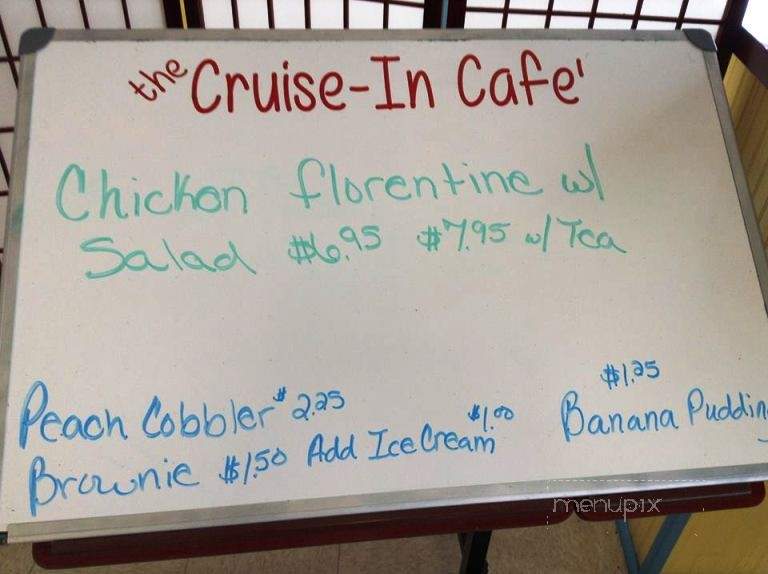 the Cruise-In Cafe'
Chicken florentine w/
Salad $6.95 $7.95 w/ Tea
Peach Cobbler $2.25
Brownie $1.50 Add Ice Cream $1.00
$1.25
Banana Puddin
menupix